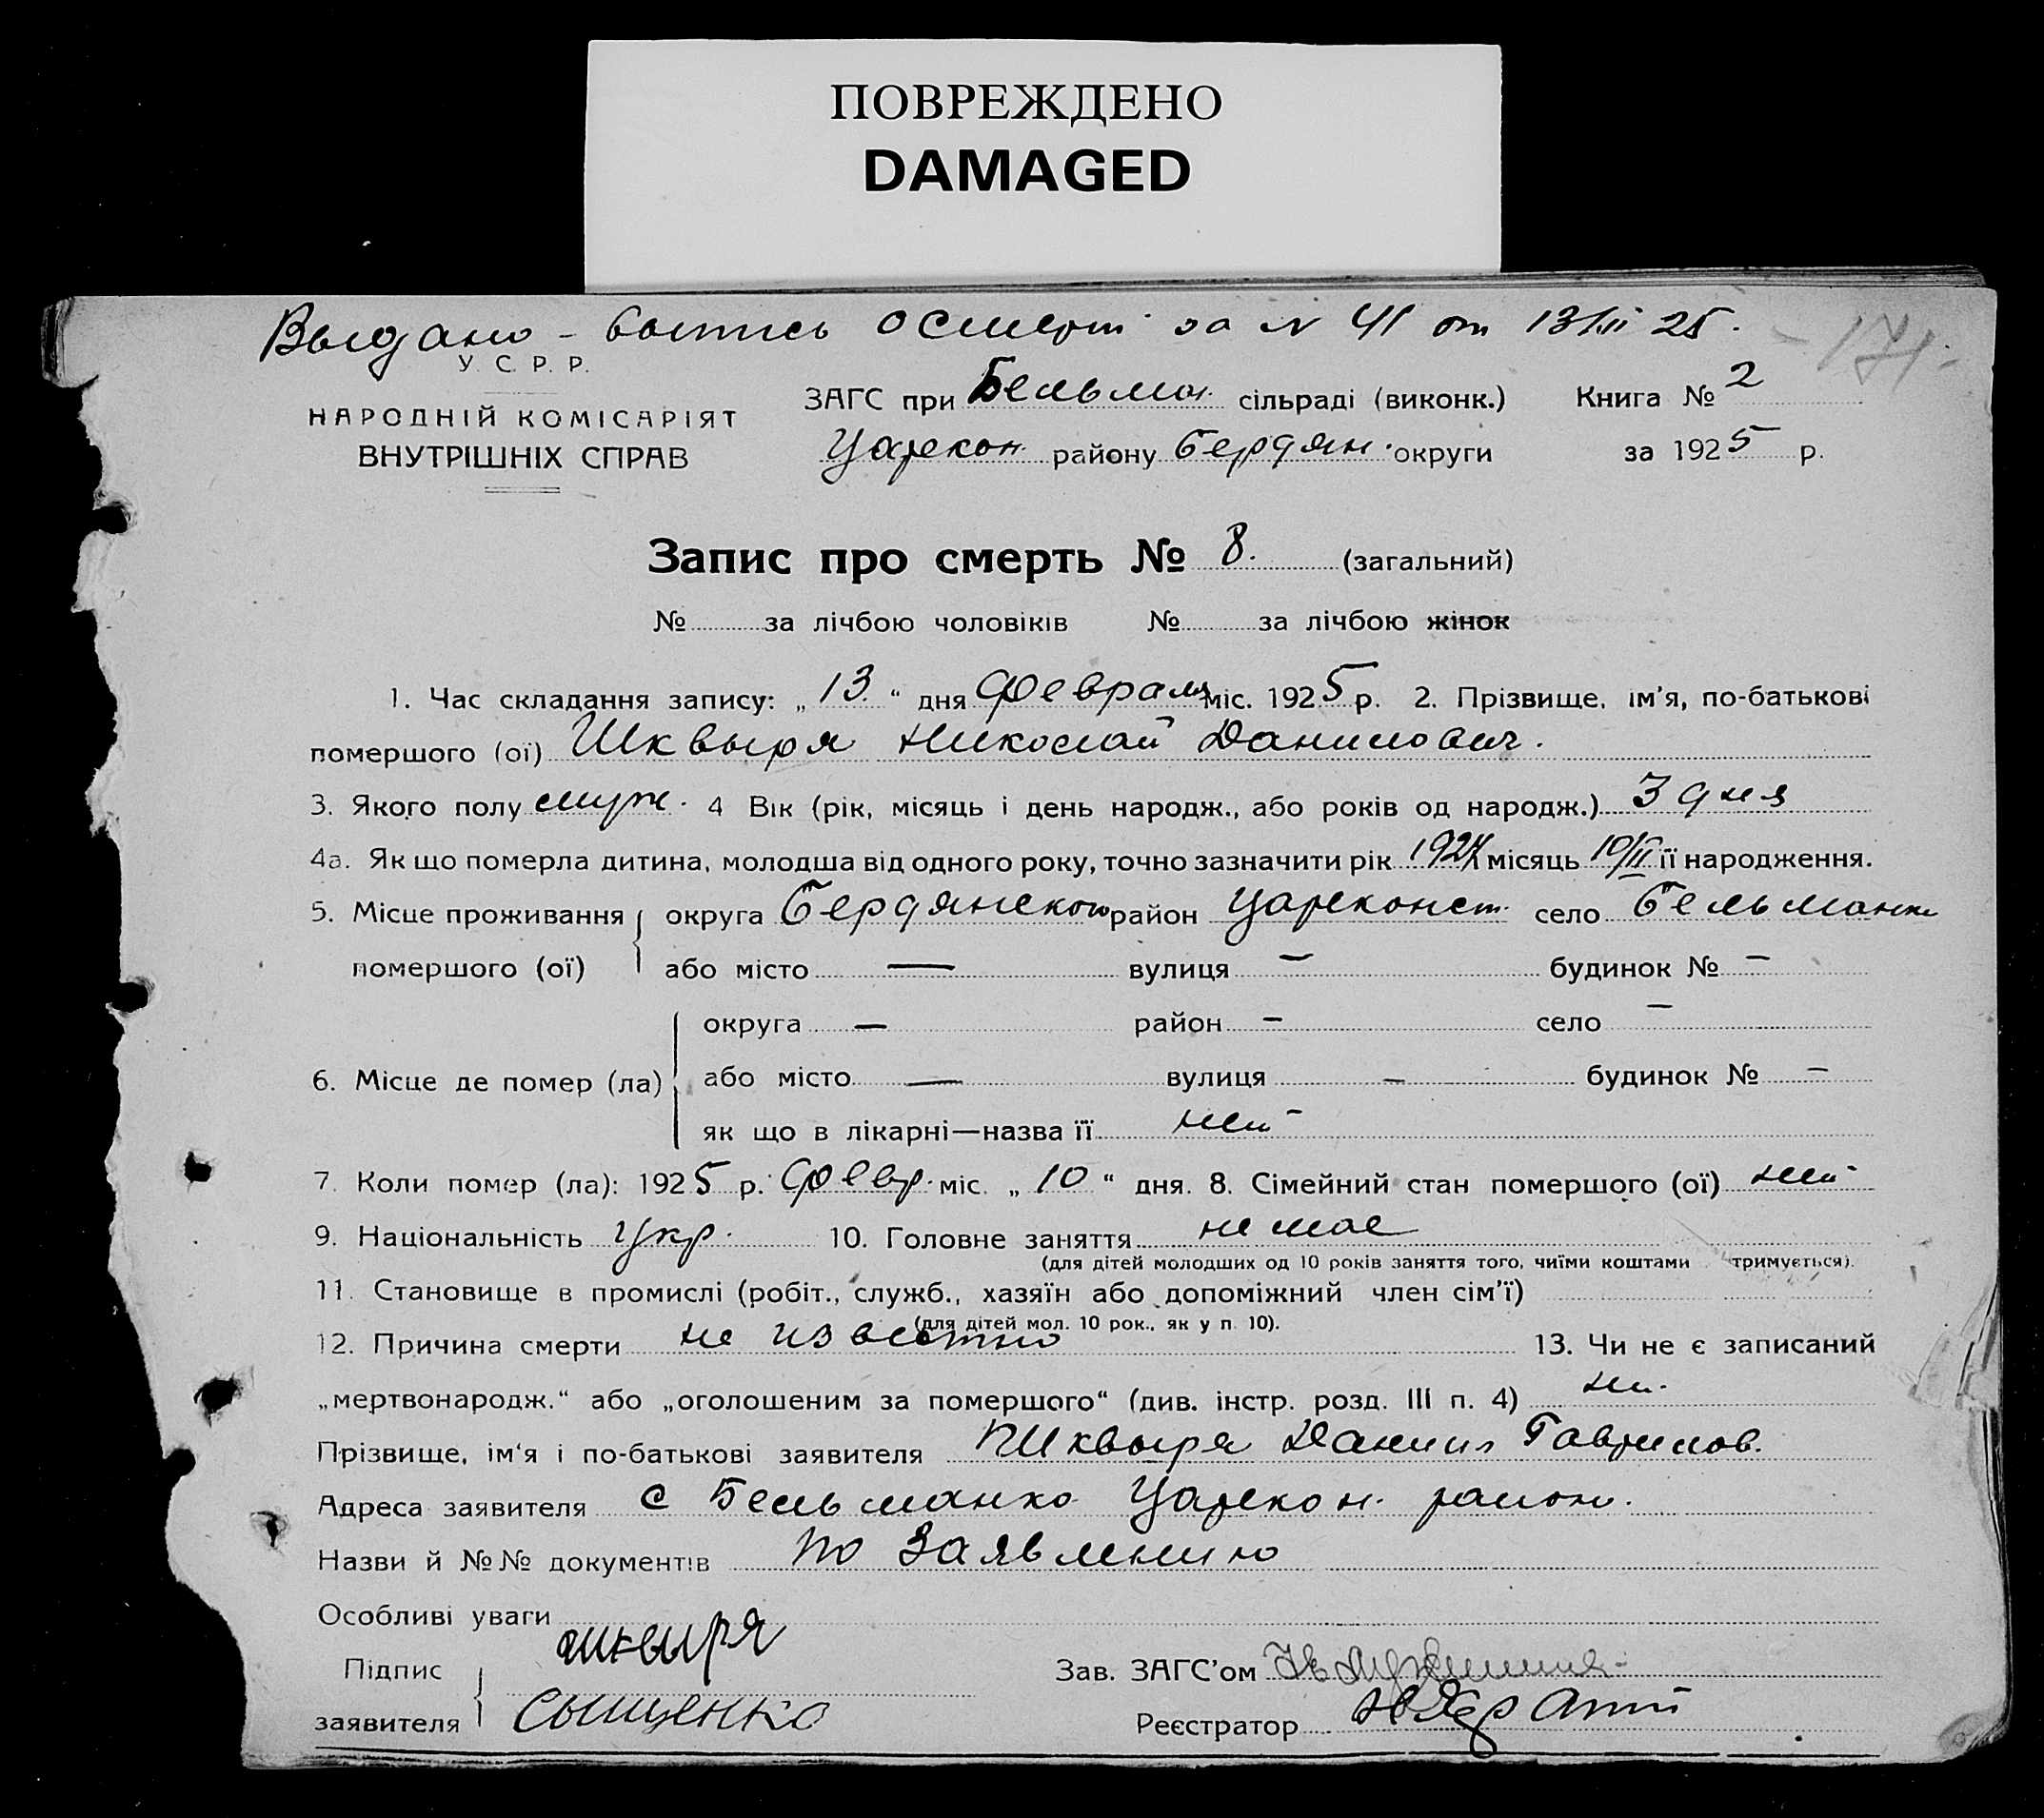 ПОВРЕЖДЕНО
DAMAGED
Выдано - выпись о смерти за N 41 от 13/II 25. - 171 -
У. С. Р. Р.
НАРОДНІЙ КОМІСАРІЯТ
ВНУТРІШНІХ СПРАВ
ЗАГС при Бельман. сільраді (виконк.) Книга № 2
Царекон. району Бердян. округи за 1925 р.
Запис про смерть № 8. (загальний)
№ за лічбою чоловіків № за лічбою жінок
1. Час складання запису: „13“ дня февраля міс. 1925 р. 2. Прізвище, ім'я, по-батькові
помершого (ої) Шквыря Николай Данилович.
3. Якого полу муж. 4 Вік (рік, місяць і день народж., або років од народж.) 3 дня
4а. Як що померла дитина, молодша від одного року, точно зазначити рік місяць 10/II її народження.
5. Місце проживання округа Бердянского район Цареконст. село Бельманка
помершого (ої) або місто — вулиця — будинок № —
округа — район — село —
6. Місце де помер (ла) або місто — вулиця — будинок № —
як що в лікарні—назва її нет
7. Коли помер (ла): 1925 р. февр. міс. „10“ дня. 8. Сімейний стан помершого (ої) нет
9. Національність укр. 10. Головне заняття не мае
(для дітей молодших од 10 років заняття того, чиїми коштами тримується).
11. Становище в промислі (робіт., служб., хазяїн або допоміжний член сім'ї)
(для дітей мол. 10 рок., як у п. 10).
12. Причина смерти не известно 13. Чи не є записаний
„мертвонародж.“ або „оголошеним за помершого“ (див. інстр. розд. III п. 4)
Прізвище, ім'я і по-батькові заявителя Шквыря Данил Гаврилов.
Адреса заявителя с Бельманка Царекон. район.
Назви й №№ документів по заявлению
Особливі уваги
Підпис шквыря
заявителя Сыщенко
Зав. ЗАГС'ом
Реєстратор